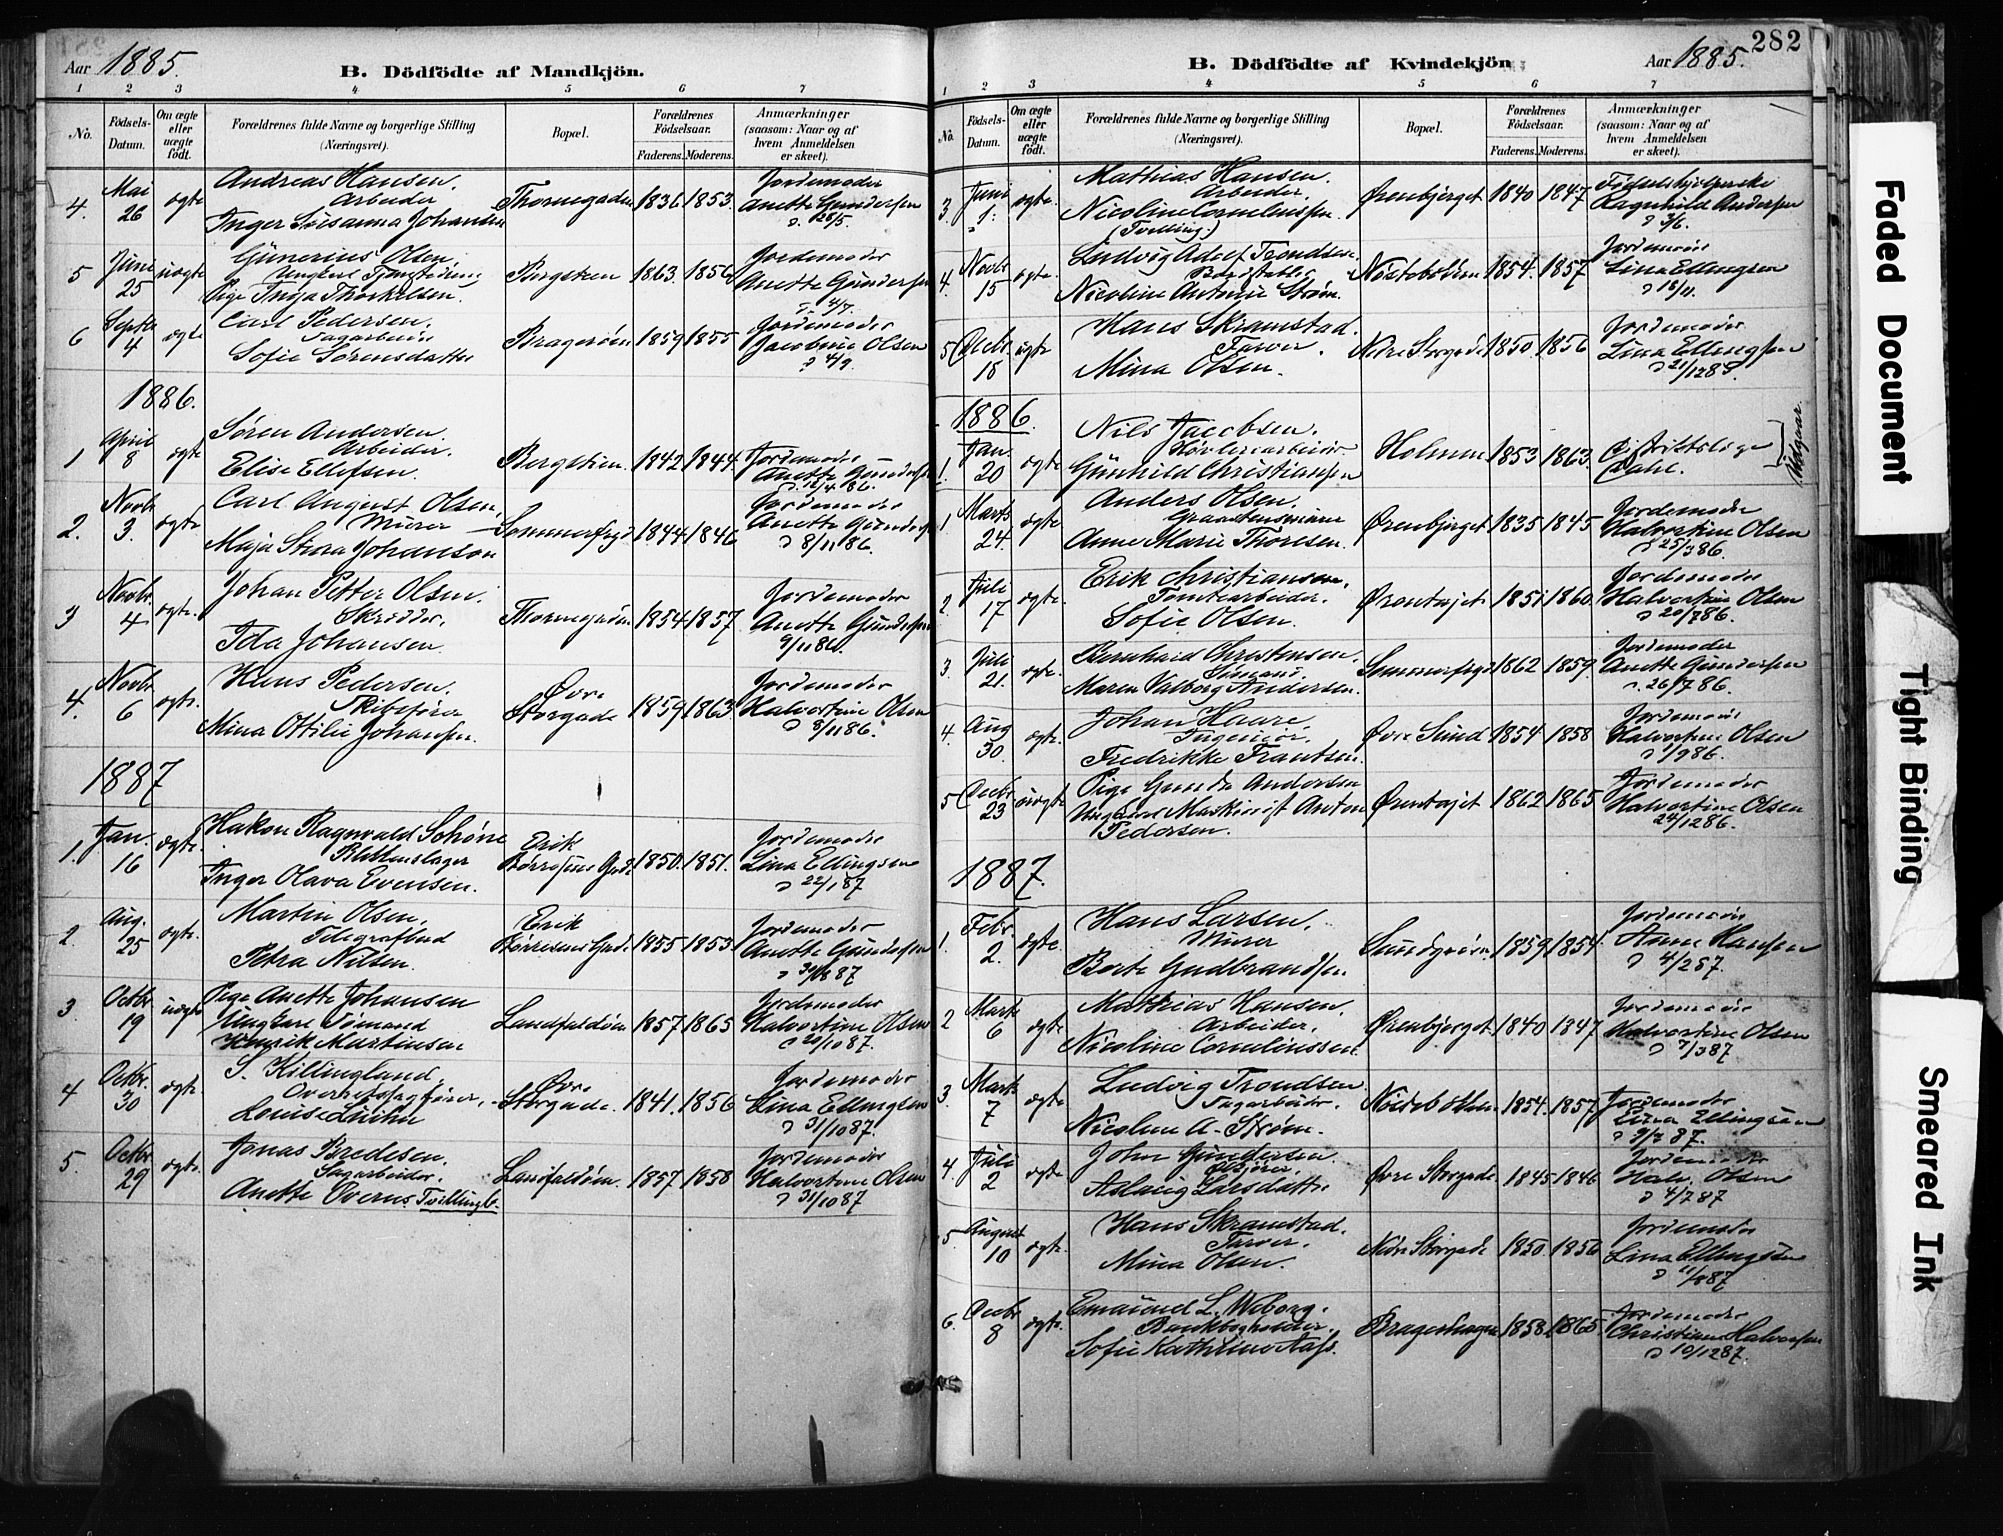 Aar 1885.
B. Dödfödte af Mandkjön.
1 2 3 4 5 6 7
No.
Födsels-Datum.
Om ægte eller uægte födt.
Forældrenes fulde Navne og borgerlige Stilling (Næringsvei).
Bopæl.
Forældrenes Födselsaar.
Faderens. Moderens.
Anmærkninger (saasom: Naar og af hvem Anmeldelsen er skeet).
4. Mai 26 ægte
Andreas Hansen.
Arbeider
Inger Susanna Johansen
Thornegaden 1836. 1853.
Jordemoder
Anette Gundersen
26/5.
5 Juni 25 uægte
Gunerius Olsen,
Ungkarl
Pige Inga Thorkelsen.
Bergstien 1863. 1856
Jordemoder
Anette Gundersen
4/7.
6 Septbr 4 ægte
Carl Pedersen,
Sagarbeider
Sofie Sørensdatter
Bragerøen 1859 1855
Jordemoder
Jacobine Olsen
4/9.
1886.
1 April 8 ægte
Søren Andersen.
Arbeider.
Elise Ellefsen.
Bergstien. 1842 1844.
Jordemoder
Anette Gundersen
12/4 86.
2. Novbr 3. ægte
Carl August Olsen,
Murer
Maja Stina Johanson
Sommerfryd 1844 1846
Jordemoder
Anette Gundersen
8/11 86.
3 Novbr. 4 ægte.
Johan Petter Olsen.
Skrædder,
Ida Johansen.
Thornegaden 1854 1857.
Jordemoder
Anette Gundersen
9/11 86.
4. Novbr 6 ægte.
Hans Pedersen.
Skibsfører
Mina Ottilie Johansen.
Øvre Storgade 1859 1863
Jordemoder
Halvortine Olsen
8/11 86.
1887
1. Jan. 16 ægte.
Hakon Ragnvald Schøne
Blikkenslager
Inger Olava Evensen.
Erik Børresens Gade 1850. 1851.
Jordemoder
Lina Ellingsen
22/1 87
2. Aug. 25 ægte.
Martin Olsen,
Telegrafbud
Petra Nilsen.
Erik Børresens Gade. 1855. 1853
Jordemoder
Anette Gundersen
30/8 87
3 Octbr 19 uægte
Pige Anette Johansen
Ungkarl Sømand
Henrik Martinsen
Landfaldøen 1857. 1865
Jordemoder
Halvortine Olsen
20/10 87.
4 Octbr. 30 ægte.
S. Killingland,
Overretssagfører,
Louise
Øvre Storgade. 1841. 1856
Jordemoder
Lina Ellingsen
31/10 87.
5. Octbr 29 ægte.
Jonas Bredesen.
Sagarbeider.
Anette Overns. Tvilling b.
Landfaldøen. 1857 1858
Jordemoder
Halvortine Olsen
31/10 87
282
B. Dödfödte af Kvindekjön.
Aar 1885.
1 2 3 4 5 6 7
No.
Födsels-Datum.
Om ægte eller uægte födt.
Forældrenes fulde Navne og borgerlige Stilling (Næringsvei).
Bopæl.
Forældrenes Födselsaar.
Faderens. Moderens.
Anmærkninger (saasom: Naar og af hvem Anmeldelsen er skeet).
3 Juni 1. ægte.
Mathias Hansen.
Arbeider,
Nicoline Corneliussen.
(Tvilling.)
Ørenbjerget 1840 1847
Fødselshjelperske
Ragnhild Andersen
3/6.
4. Novbr 15 ægte.
Ludvig Adolf Trondsen
Bordstabler
Nicoline Antonie Strøm.
Nøstebolien 1854. 1857
Jordemoder
Lina Ellingsen
18/11.
5 Decbr 18 ægte
Hans Skramstad.
Farver.
Mina Olsen.
Nedre Storgade 1850. 1856
Jordemoder
Lina Ellingsen
21/12 85.
1886.
1. Jan. 20 ægte.
Nils Jacobsen.
Høvleriarbeider
Gunhild Christiansen
Holmen 1853 1863.
Distriktslæge
Dahl.
Udgaar.
1 Marts 24. ægte
Anders Olsen,
Graastensminer
Anne Marie Thoresen.
Ørenbjerget 1835 1845
Jordemoder
Halvortine Olsen
25/3 86.
2. Juli 17 ægte.
Erik Christiansen,
Tomtearbeider.
Sofie Olsen.
Ørentajet 1851 1860
Jordemoder
Halvortine Olsen
20/7 86.
3. Juli 21. ægte.
Bernhard Christensen.
Sømand.
Maren Valborg Andersen.
Sommerfryd 1862 1859.
Jordemoder
Anette Gundersen
26/7 86.
4. Aug 30 ægte.
Johan Haare
Ingeniør
Fredrikke Frantsen.
Øvre Sund 1854 1858
Jordemoder
Halvortine Olsen
1/9 86.
5 Decbr 23 uægte
Pige Gunda Andersen
Ungkarl Maskinist Anton
Pedersen.
Ørentajet 1862 1865
Jordemoder
Halvortine Olsen
24/12 86.
1887.
1. Febr 2. ægte.
Hans Larsen.
Murer
Berte Gudbrandsen
1859 1854.
Jordemoder
Anne Hansen
4/2 87.
2 Marts 6 ægte.
Mathias Hansen.
Arbeider,
Nicoline Corneliussen.
Ørenbjerget 1840 1847
Jordemoder
Halvortine Olsen
7/3 87
3 Marts 7 ægte
Ludvig Trondsen
Sagarbeider.
Nicoline A. Strøm.
1854. 1857
Jordemoder
Lina Ellingsen
9/3 87.
4 Juli 2 ægte
John Gundersen
Aslaug Larsdatter
Øvre Storgade 1845 1846
Jordemoder
Halv. Olsen
4/7 87.
5 August 10 ægte.
Hans Skramstad.
Farver.
Mina Olsen.
Nedre Storgade 1850. 1856
Jordemoder
Lina Ellingsen
11/8 87
6. Decbr 8 ægte.
Emanuel L. Wiborg.
Bankbogholder.
Sofie Kathrine Aass.
Brageshaugen 1858. 1865.
Jordemoder
Christiane Halvorsen
10/12 87.
Faded Document
Tight Binding
Smeared Ink